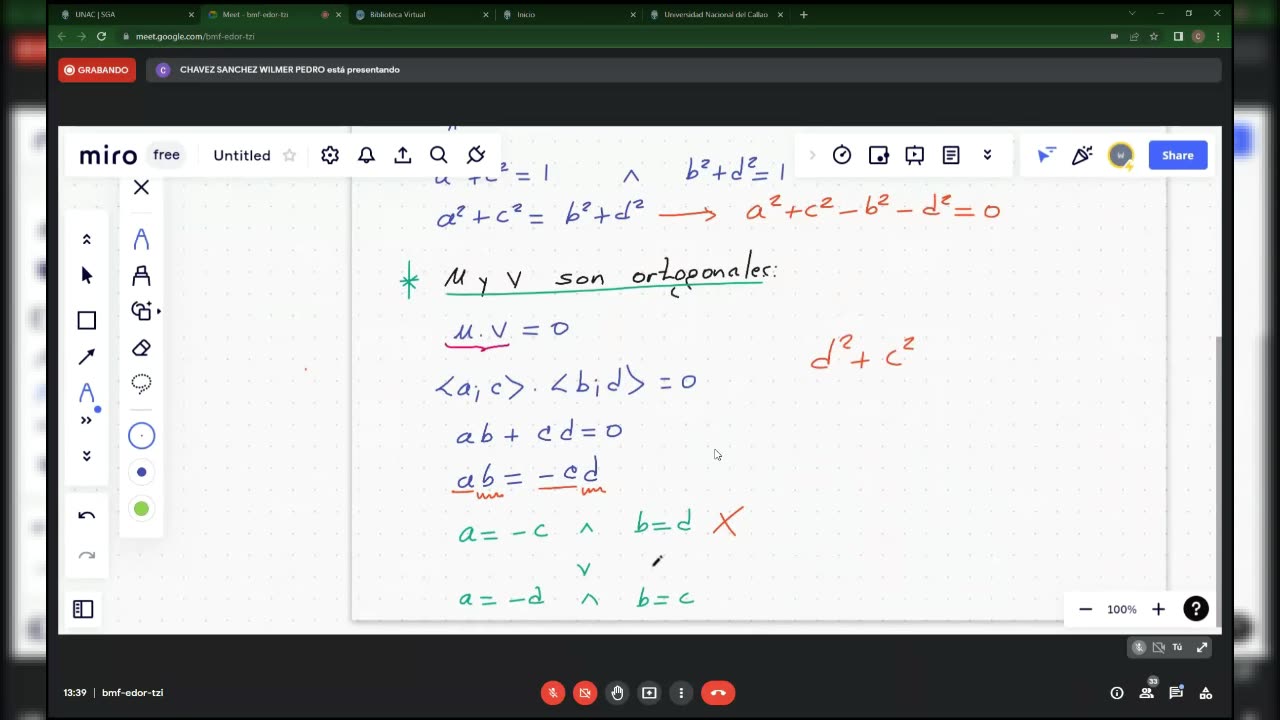 UNAC | SGA
Meet - bmf-edor-tzi
Biblioteca Virtual
Inicio
Universidad Nacional del Callao
meet.google.com/bmf-edor-tzi
C
GRABANDO
C CHAVEZ SANCHEZ WILMER PEDRO está presentando
miro free Untitled
W Share
² = 1 ∧ b²+d²=1
a²+c² = b²+d² → a²+c²-b²-d²=0
* μ y v son ortogonales:
μ.v = 0
d²+c²
<a;c>.<b;d> = 0
ab + cd = 0
ab = -cd
a = -c ∧ b=d X
∨
a = -d ∧ b=c
100%
Tú
13:39 | bmf-edor-tzi
33